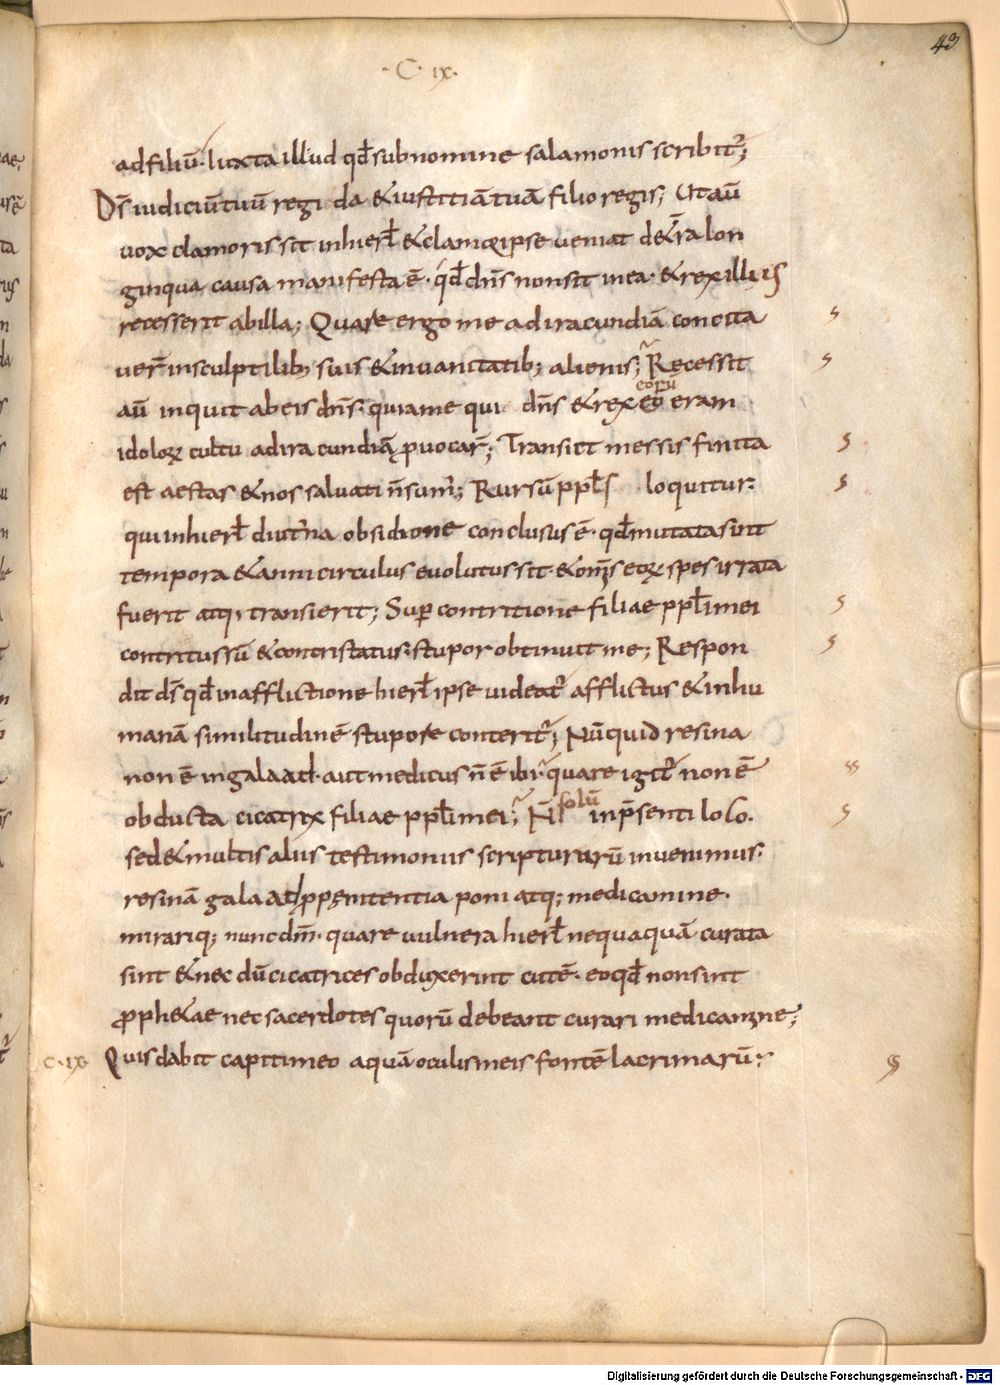 43
·C· ix·
ad filiū· Iuxta illud qđ sub nomine salamonis scribit̄;
D̄s iudiciū tuū regi da & iustitiā tuā filio regis; Ut aū
uox clamoris sit in hierl̄ & clamet ipse ueniat de t̄ra lon
ginqua causa manifesta ē· qđ dn̄s non sit in ea· & rex illius
recesserit ab illa; Quare ergo me ad iracundiā concita
uer̄ in sculptilib; suis & in uanitatib; alienis; Recessit
aū inquit ab eis dn̄s· quia me qui dn̄s & rex eorū eram
idoloꝝ cultu ad iracundiā ꝓuocar̄; Transiit messis finita
est aestas & nos saluati n̄ sum̄; Rursū ppl̄s loquitur·
qui in hierl̄ diut̄na obsidione conclusus ē· qđ mutata sint
tempora & anni circulus euolutus sit· & om̄s eoꝝ spes irrata
fuerit atq; transierit; Suꝑ contritione filiae ppl̄i mei
contritus sū & contristatus· stupor obtinuit me; Respon
dit d̄s qđ in afflictione hierl̄ ipse uideat̄ afflictus & in hu
manā similitudinē stupore conterit̄; Nūquid resina
non ē in galaad· aut medicus n̄ ē ibi· quare igit̄ non ē
obducta cicatrix filiae ppl̄i mei; N̄ solū in p̄senti loco·
sed & multis aliis testimoniis scripturarū inuenimus·
resinā galaad ꝓ pęnitentia poni atq; medicamine·
mirariq; nunc dm̄· quare uulnera hierl̄ nequaquā curata
sint & nec dū cicatrices obduxerint cutē· eo qđ non sint
ꝓph&ae nec sacerdotes quorū debeant curari medicamine;
C·ix· Quis dabit capiti meo aquā oculis meis fontē lacrimarū·
Digitalisierung gefördert durch die Deutsche Forschungsgemeinschaft - DFG